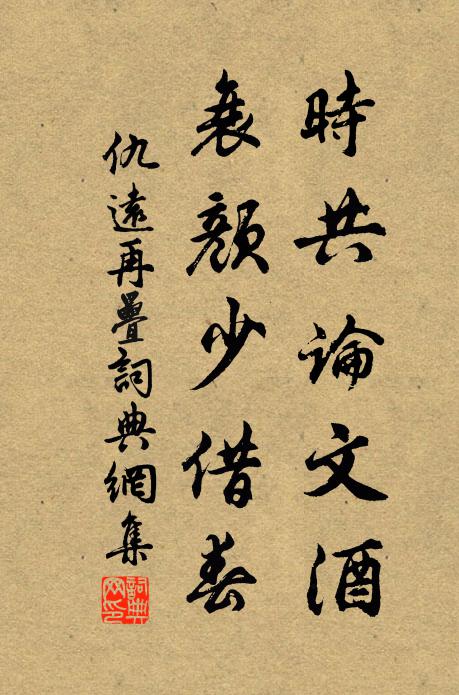 時共論文酒
衰顏少借春
仇遠再疊詞典網集
詞典網印